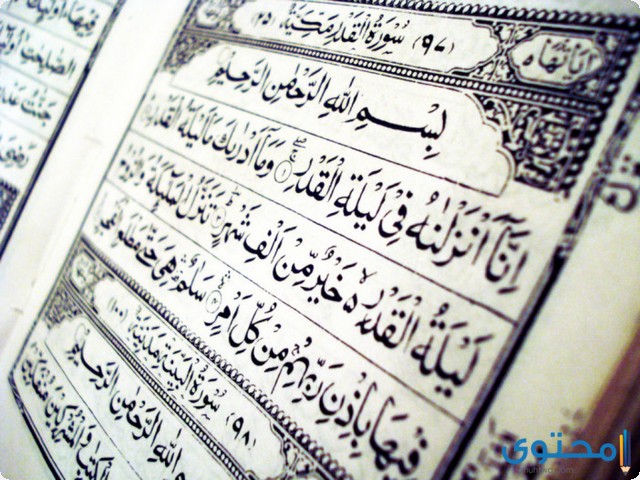 (٩٧) سُوْرَةُ الْقَدْرِ مَكِّيَّةٌ (٢٥)
بِسْمِ اللهِ الرَّحْمٰنِ الرَّحِيْمِ
اِنَّآ اَنْزَلْنٰهُ فِيْ لَيْلَةِ الْقَدْرِ ۝١ وَمَآ اَدْرٰىكَ مَا لَيْلَةُ الْقَدْرِ
لَيْلَةُ الْقَدْرِ ەۙ خَيْرٌ مِّنْ اَلْفِ شَهْرٍ تَنَزَّلُ الْمَلٰٓئِكَةُ وَالرُّوْحُ
فِيْهَا بِاِذْنِ رَبِّهِمْ مِنْ كُلِّ اَمْرٍ سَلٰمٌ هِيَ حَتّٰى مَطْلَعِ الْفَجْرِ
(٩٨) سُوْرَةُ الْبَيِّنَةِ مَدَنِيَّةٌ (١٠٠)
اللهِ الرَّحْمٰنِ الرَّحِيْمِ
الْكِتٰبِ وَالْمُشْرِكِيْنَ مُنْفَكِّيْنَ
محتوى